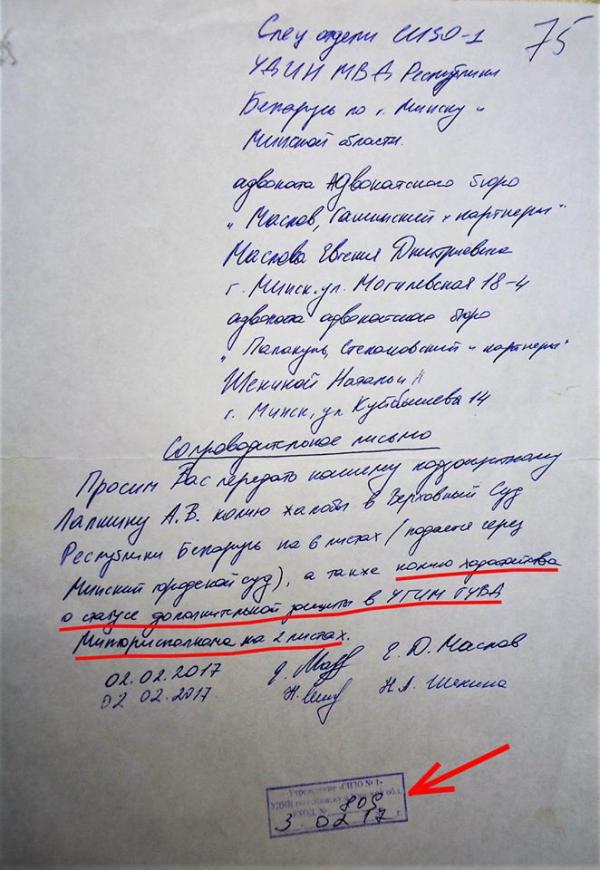 75
Спец отдел СИЗО-1
УДИН МВД Республики
Беларусь по г. Минску и
Минской области.
адвоката Адвокатского бюро
"Маслов, Гашинский и партнеры"
Маслова Евгения Дмитриевича
г. Минск, ул. Могилевская 18-4
адвоката адвокатского бюро
"Папакуль, Стекановский и партнеры"
Шекиной Натальи А
г. Минск, ул Куйбышева 14
Сопроводительное письмо
Просим Вас передать нашему подзащитному
Лапшину А.В. копию жалобы в Верховный Суд
Республики Беларусь на 6 листах (подается через
Минский городской суд), а также копию ходатайства
о статусе дополнительной защиты в УГИМ ГУВД
Мингорисполкома на 2 листах.
02.02.2017 Е.Д. Маслов
02.02.2017 Н.А. Шекина
Учреждение "СИЗО №1"
ВХОД. № 808
3 02 17 г.